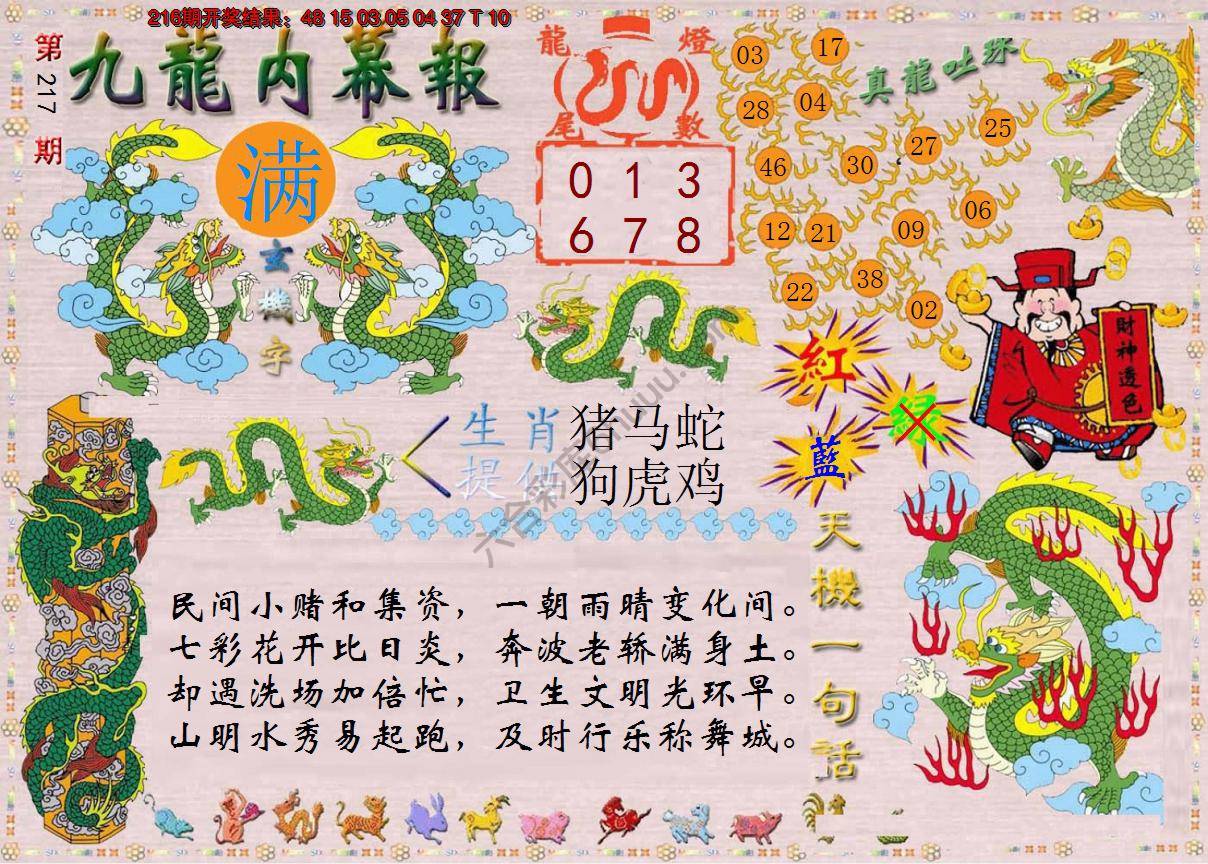 216期开奖结果：48 15 03 05 04 37 T 10
第217期
九龍内幕報
满
玄機字
龍燈尾數
0 1 3
6 7 8
真龍吐珠
03
17
28
04
25
27
46
30
06
12
21
09
38
22
02
財神透色
紅
绿
藍
生肖 猪马蛇
提供 狗虎鸡
天機一句話
民间小赌和集资，一朝雨晴变化间。
七彩花开比日炎，奔波老轿满身土。
却遇洗场加倍忙，卫生文明光环早。
山明水秀易起跑，及时行乐称舞城。